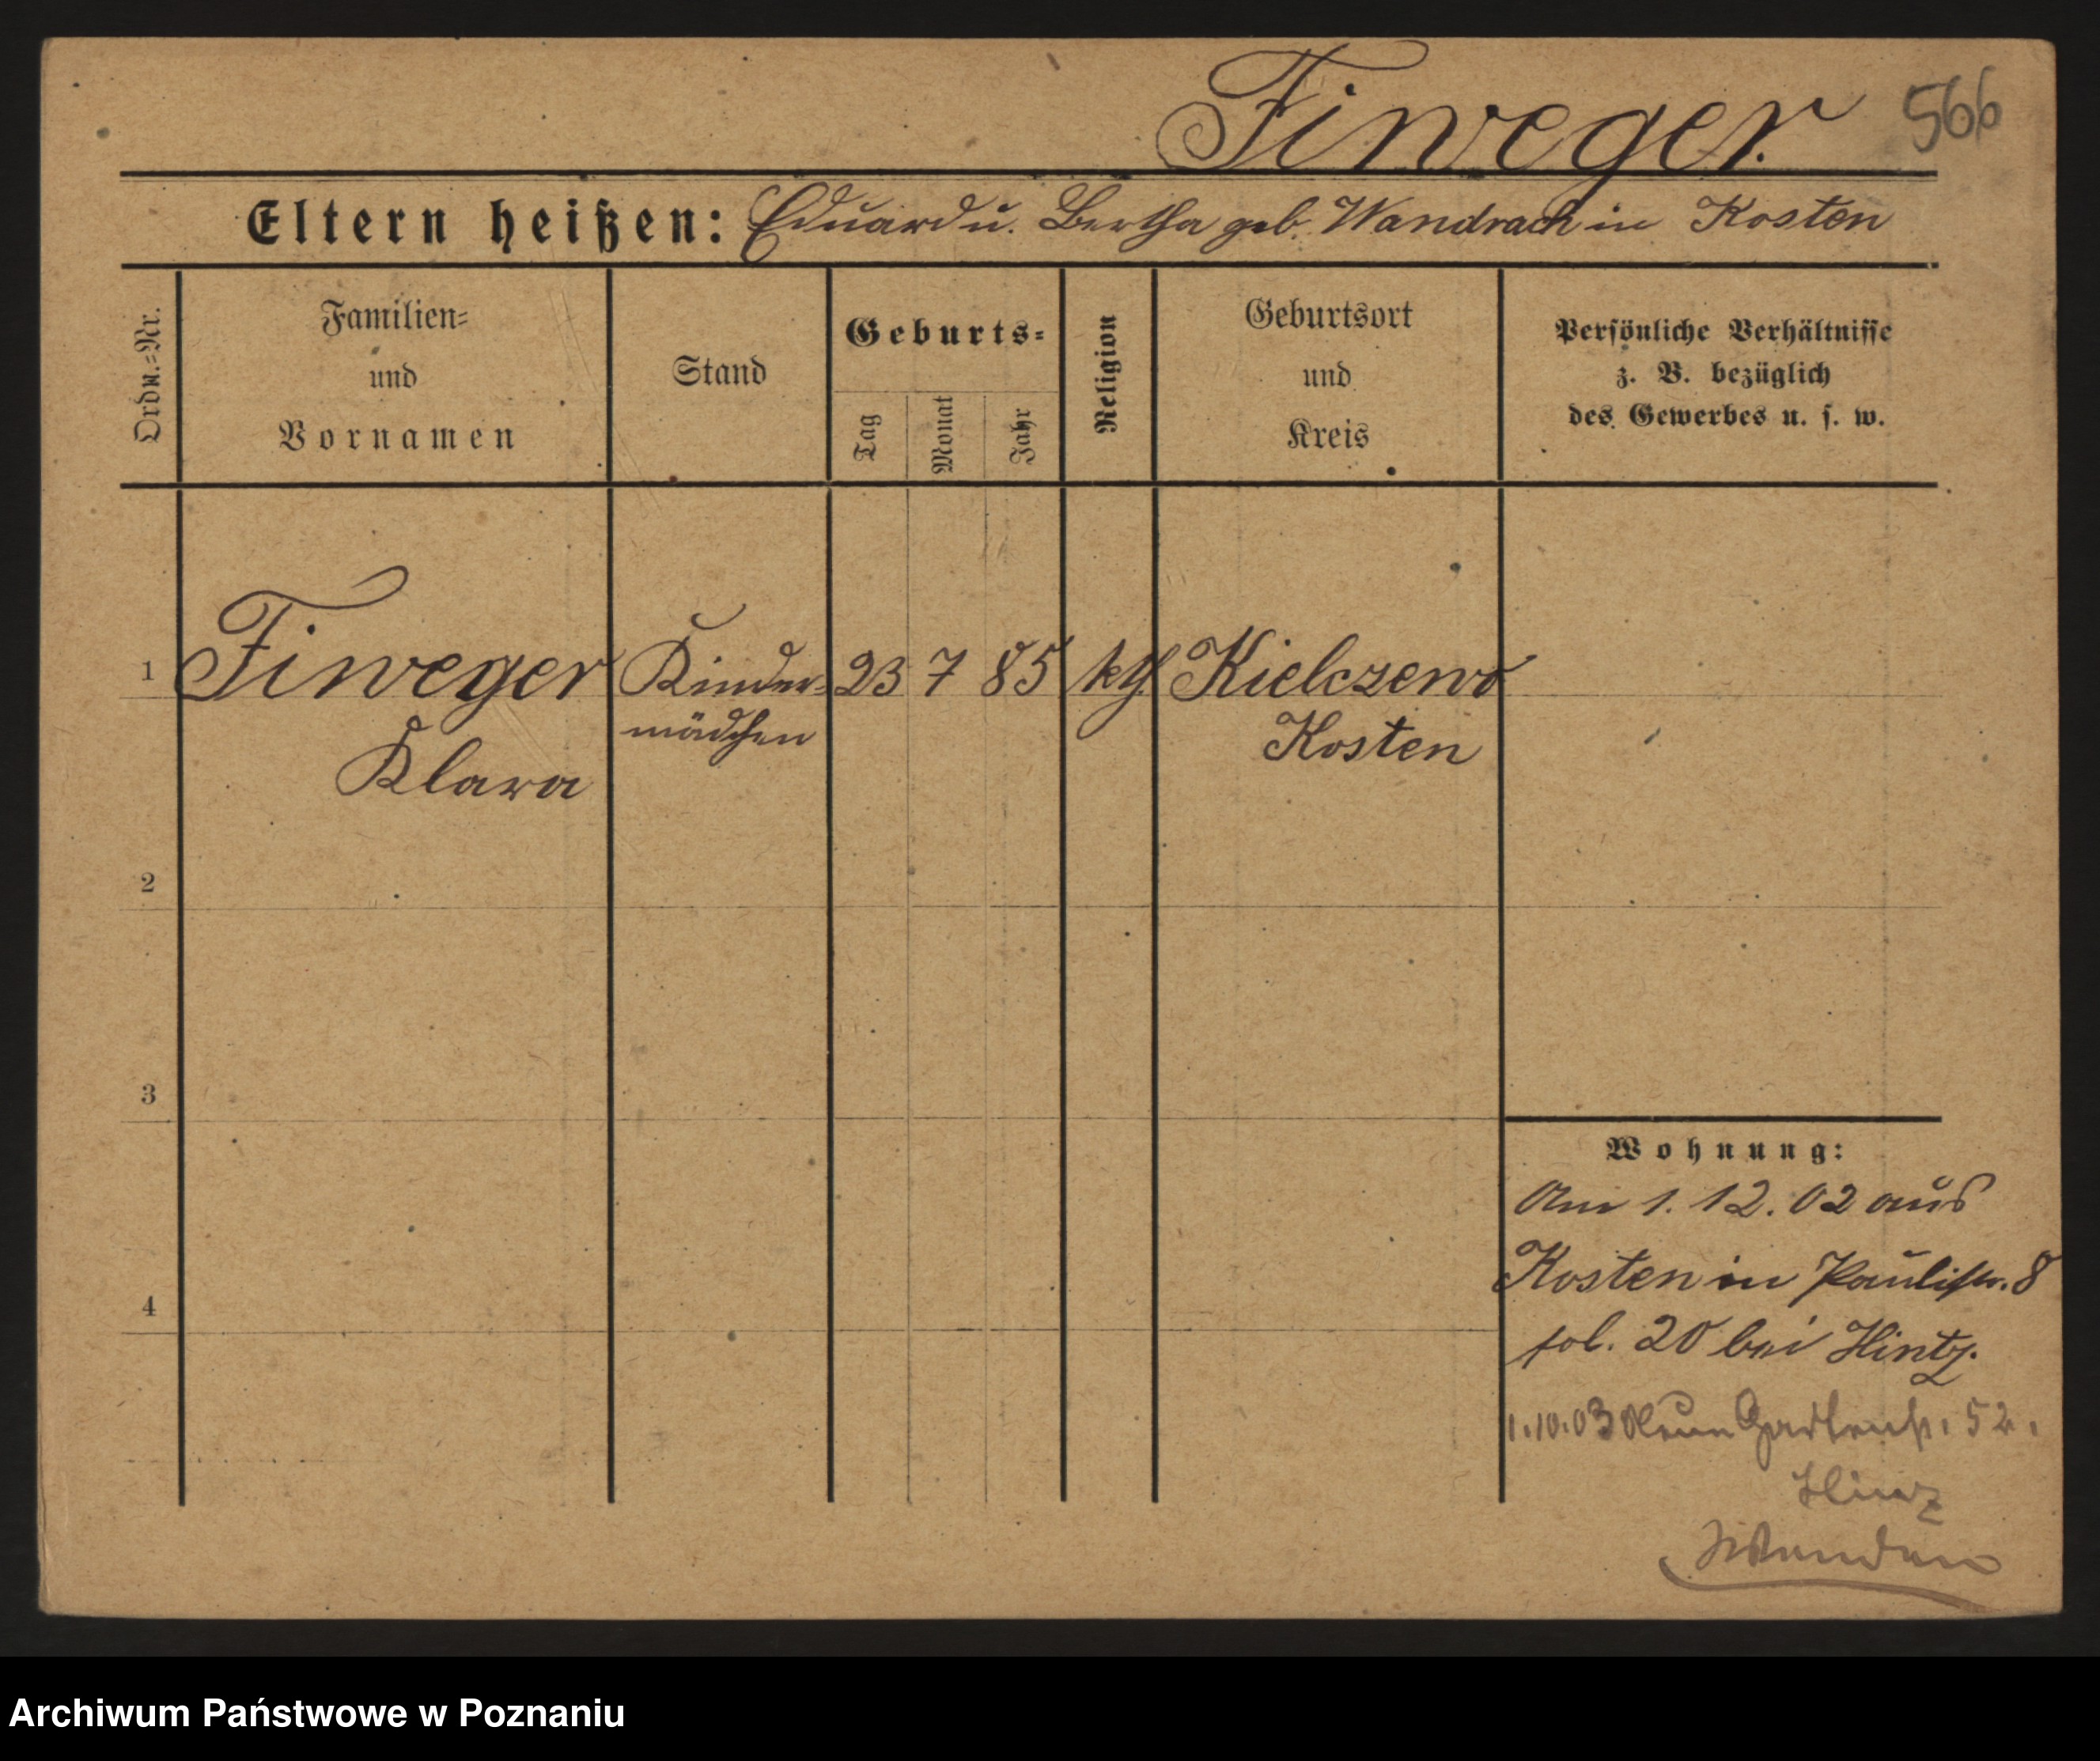 Fiweger.
566
Eltern heißen: Eduard u. Bertha geb. Wandrach in Kosten
Ordn.=Nr.
Familien=
und
Vornamen
Stand
Geburts=
Tag
Monat
Jahr
Religion
Geburtsort
und
Kreis
Persönliche Verhältnisse
z. B. bezüglich
des Gewerbes u. s. w.
1 Fiweger Kinder= 23 7 85 kth. Kielczewo
mädchen Kosten
Klara
2
3
4
Wohnung:
Am 1. 12. 02 aus
Kosten in Paulistr. 8
fol. 20 bei Hintz.
1.10.03 Gartenstr. 52.
Hinz
Wenden
Archiwum Państwowe w Poznaniu